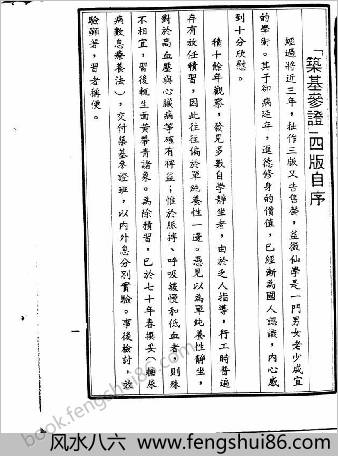 「築基參證」四版自序
經過將近三年，拙作三版又告售罄，益徵仙學是一門男女老少咸宜
的學術。其于卻病延年，進德修身的價值，已經漸為國人認識，內心感
到十分欣慰。
積十餘年觀察，發見多數自學靜坐者，由於乏人指導，行工時普遍
存有放任積習，因此往往偏於單純養性一邊。愚見以為單純養性靜坐，
對於高血壓與心臟病等確有裨益；惟於脈搏、呼吸緩慢和低血者，則殊
不相宜，習後輒生面黃帶青諸象。為除積習，已於七十年春撰妥（糖尿
病數息療養法），交付築基參證班，以內外息分別實驗。事後檢討，效
驗顯著，習者稱便。
一
book.fengshui86.com
风水八六 www.fengshui86.com